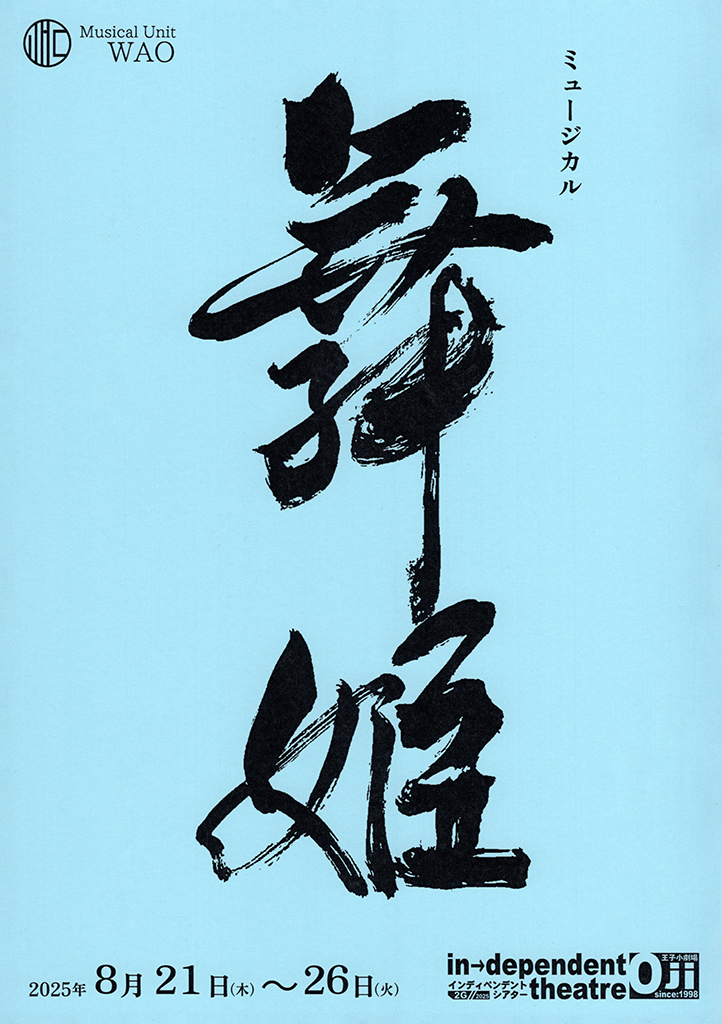 Musical Unit
WAO
ミュージカル
舞姫
2025年 8月21日(木)～26日(火)
in→dependent
インディペンデント
2G//2025 シアター
theatre
王子小劇場
Oji
since:1998